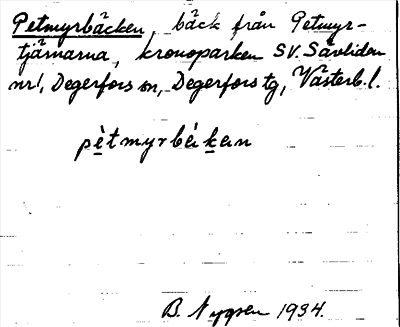 Petmyrbäcken, bäck från Petmyr-
tjärnarna, kronoparken SV. Sävliden
nr 1, Degerfors sn, Degerfors tg, Västerb. l.
pètmyrbäkan
B. Nygren 1934.